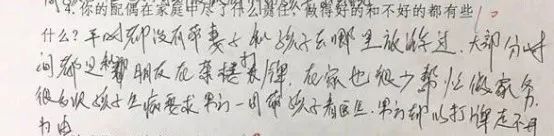 4.你的配偶在家庭中尽了什么责任，做得好的和不好的都有些
什么？平时都没有带妻子和孩子去哪里放松过，大部分时
间都是和朋友在茶楼打牌，在家也很少帮忙做家务，
很多次孩子生病要求男方一同带孩子看医生，男方都以打牌走不开
为由